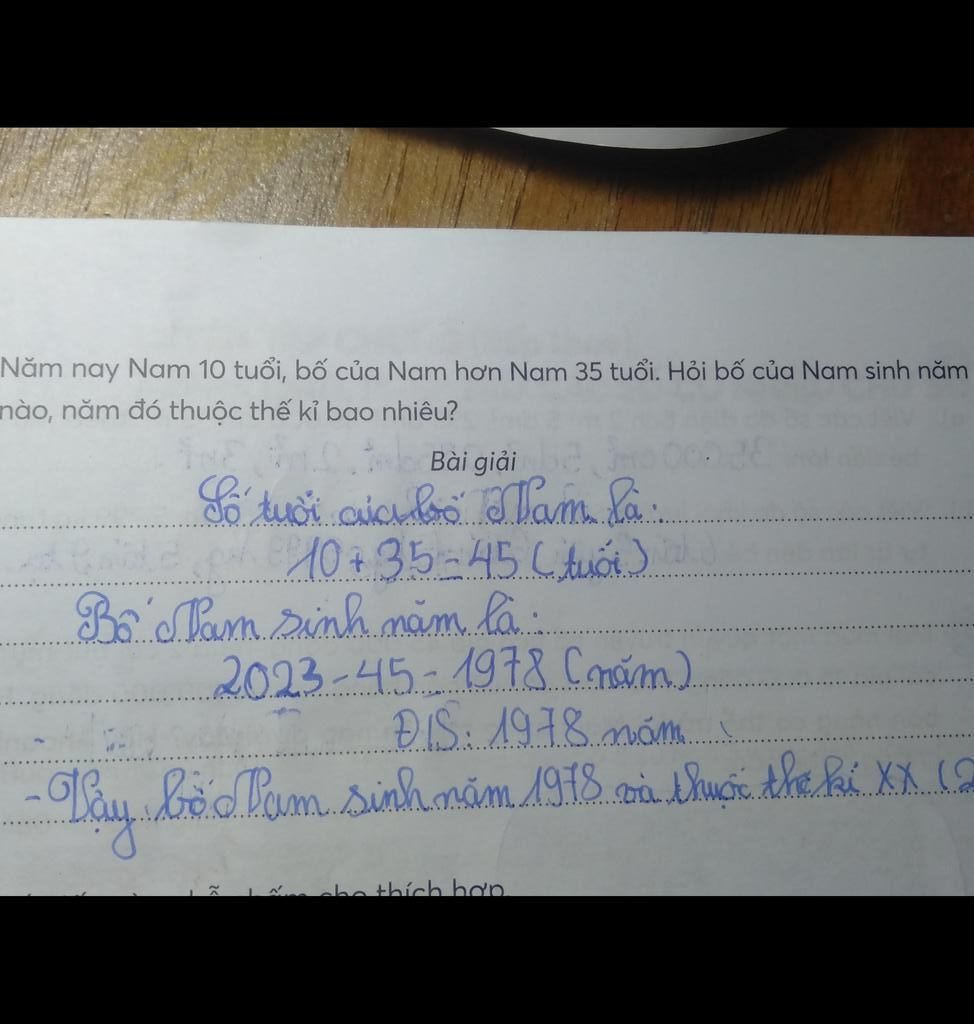 Năm nay Nam 10 tuổi, bố của Nam hơn Nam 35 tuổi. Hỏi bố của Nam sinh năm
nào, năm đó thuộc thế kỉ bao nhiêu?
Bài giải
Số tuổi của bố Nam là:
10 + 35 = 45 (tuổi)
Bố Nam sinh năm là:
2023 - 45 = 1978 (năm)
Đ/S: 1978 năm
- Vậy bố Nam sinh năm 1978 và thuộc thế kỉ XX (2
cho thích hợp.